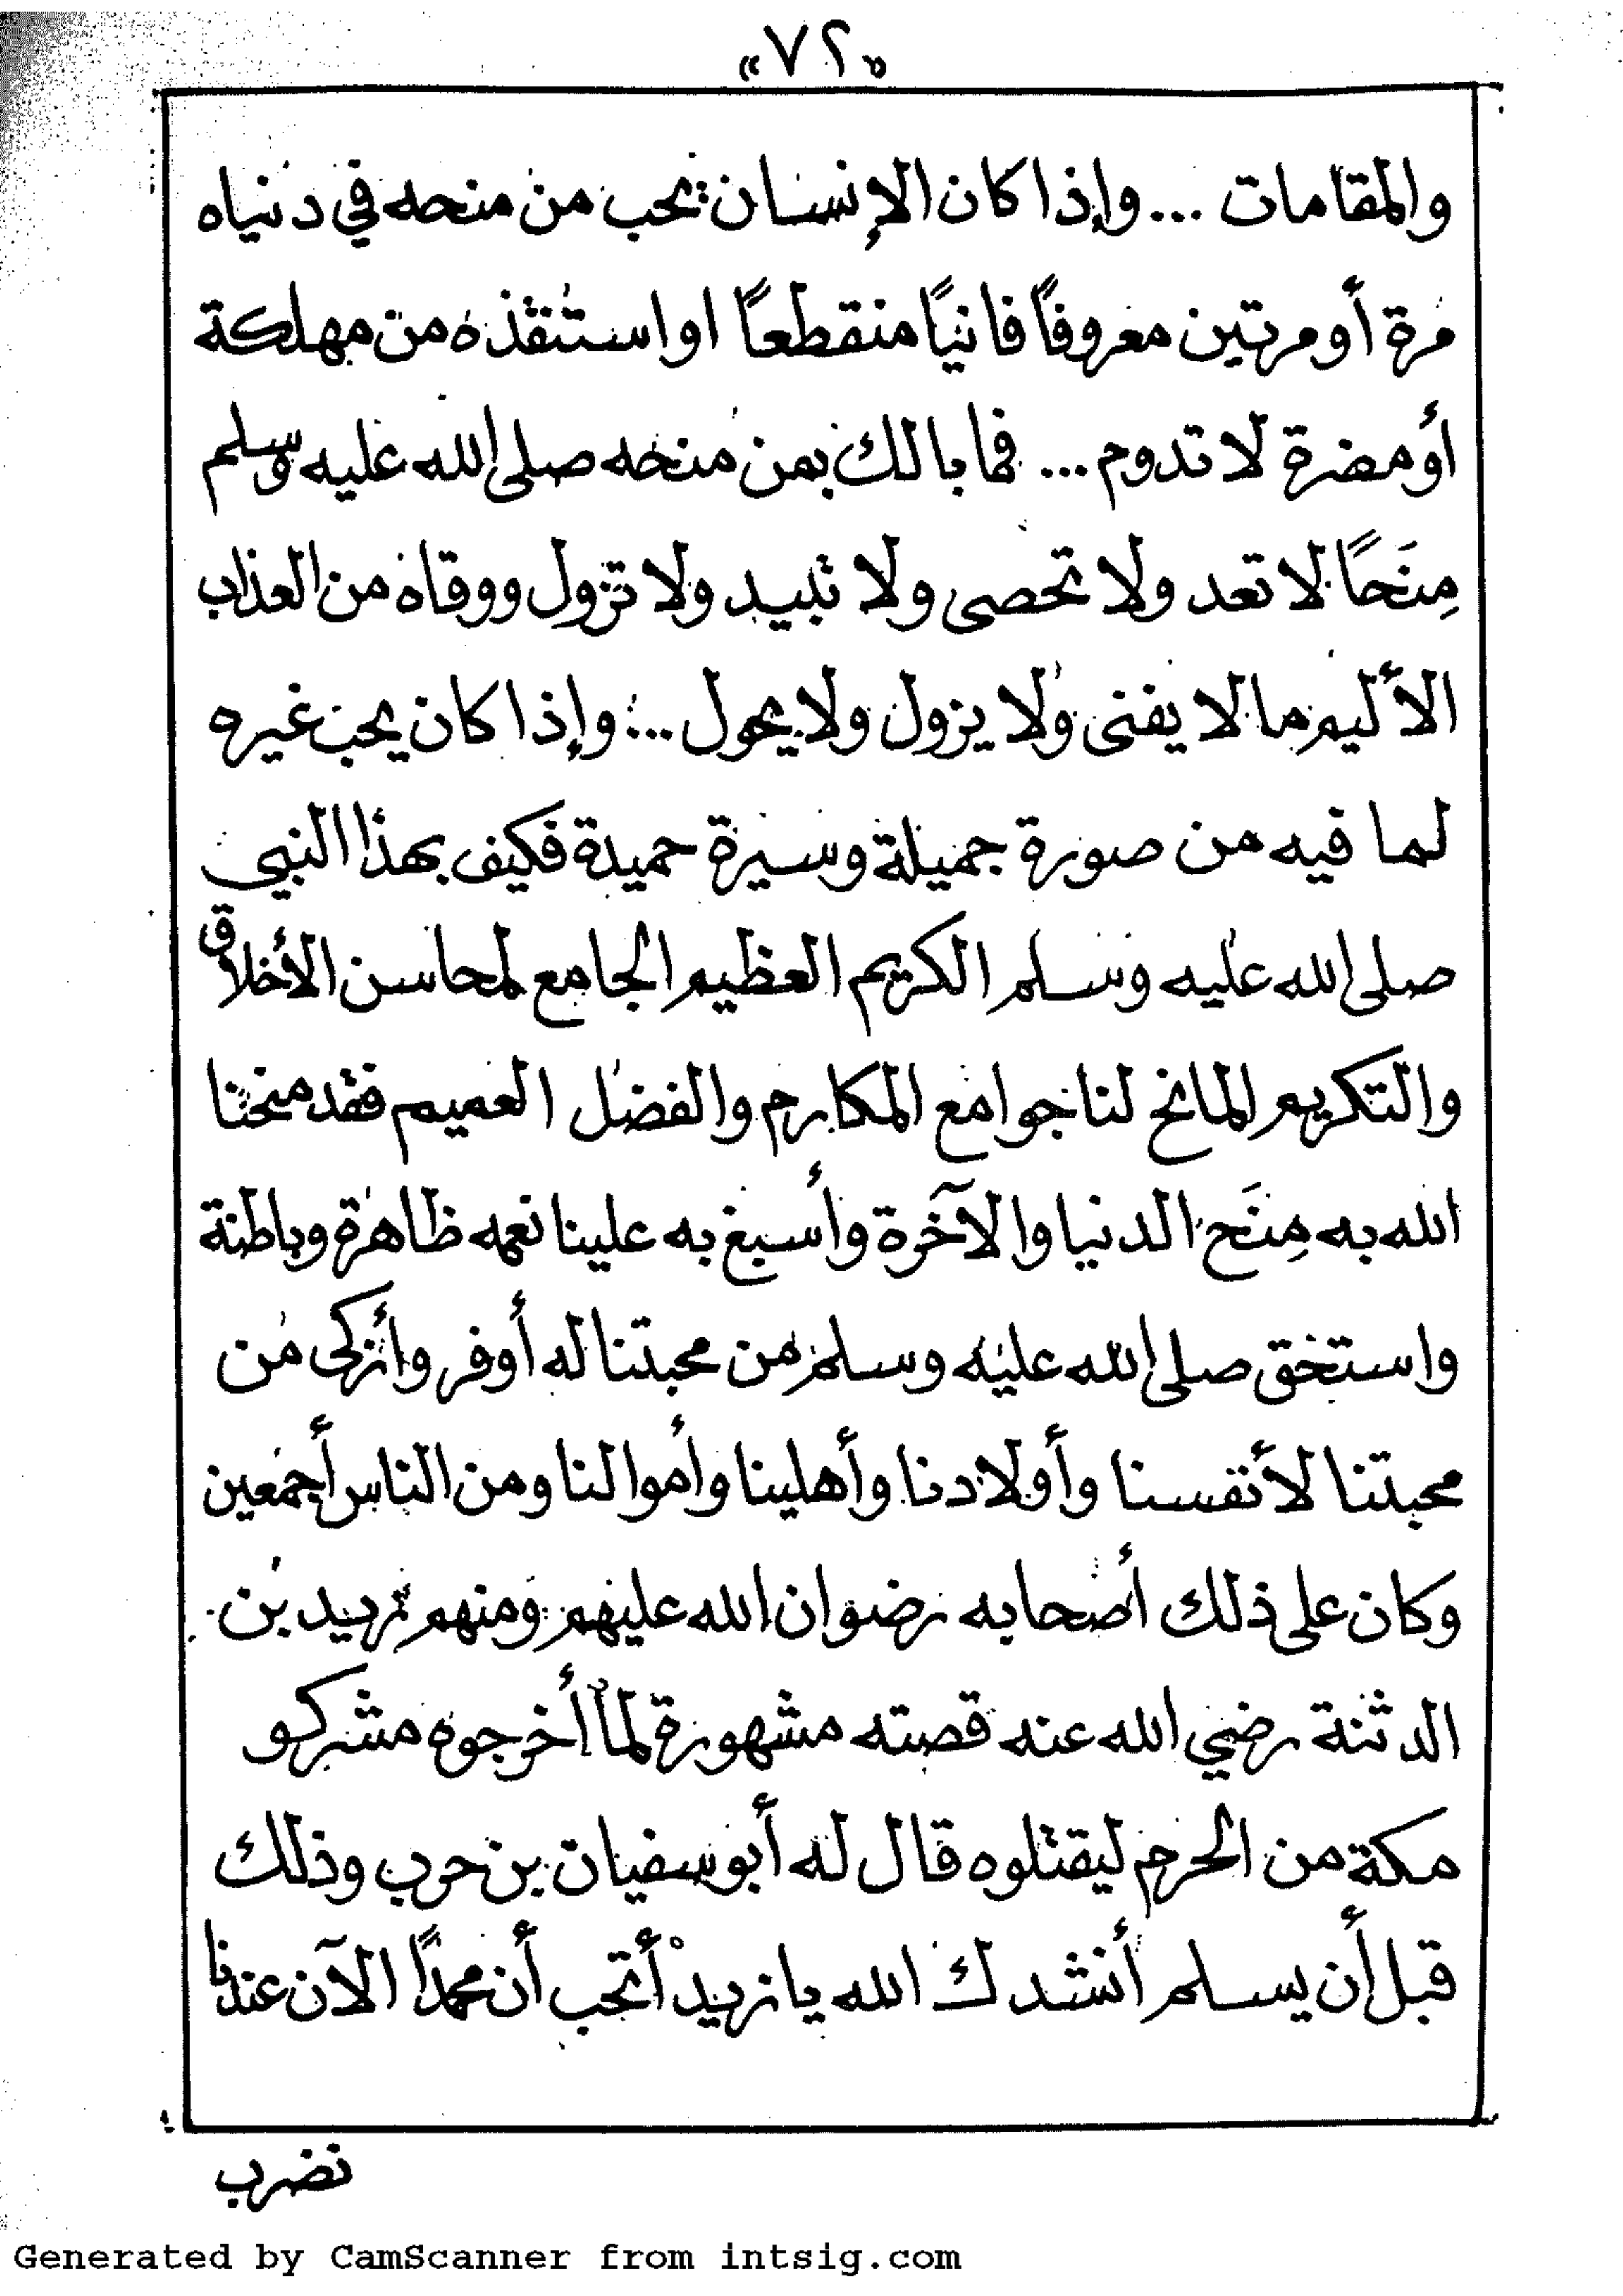 «٧٢»
والمقامات ... وإذا كان الإنسان يحب من منحه في دنياه
مرة أو مرتين معروفاً فانياً منقطعاً او استنقذه من مهلكة
أو مضرة لا تدوم ... فما بالك بمن منحه صلى الله عليه وسلم
مِنَحاً لا تعد ولا تحصى ولا تبيد ولا تزول ووقاه من العذاب
الأليم ما لا يفنى ولا يزول ولا يحول ... وإذا كان يحب غيره
لما فيه من صورة جميلة وسيرة حميدة فكيف بهذا النبي
صلى الله عليه وسلم الكريم العظيم الجامع لمحاسن الأخلاق
والتكريم المانح لنا جوامع المكارم والفضل العميم فقد منحنا
الله به مِنَح الدنيا والآخرة وأسبغ به علينا نعمه ظاهرة وباطنة
واستحق صلى الله عليه وسلم من محبتنا له أوفر وأزكى من
محبتنا لأنفسنا وأولادنا وأهلينا وأموالنا ومن الناس أجمعين
وكان على ذلك أصحابه رضوان الله عليهم ومنهم زيد بن
الدثنة رضي الله عنه قصته مشهورة لما أخرجوه مشركو
مكة من الحرم ليقتلوه قال له أبو سفيان بن حرب وذلك
قبل أن يسلم أنشدك الله يا زيد أتحب أن محمداً الآن عندنا
نضرب
Generated by CamScanner from intsig.com